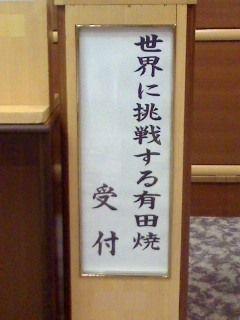 世界に挑戦する有田焼
受付